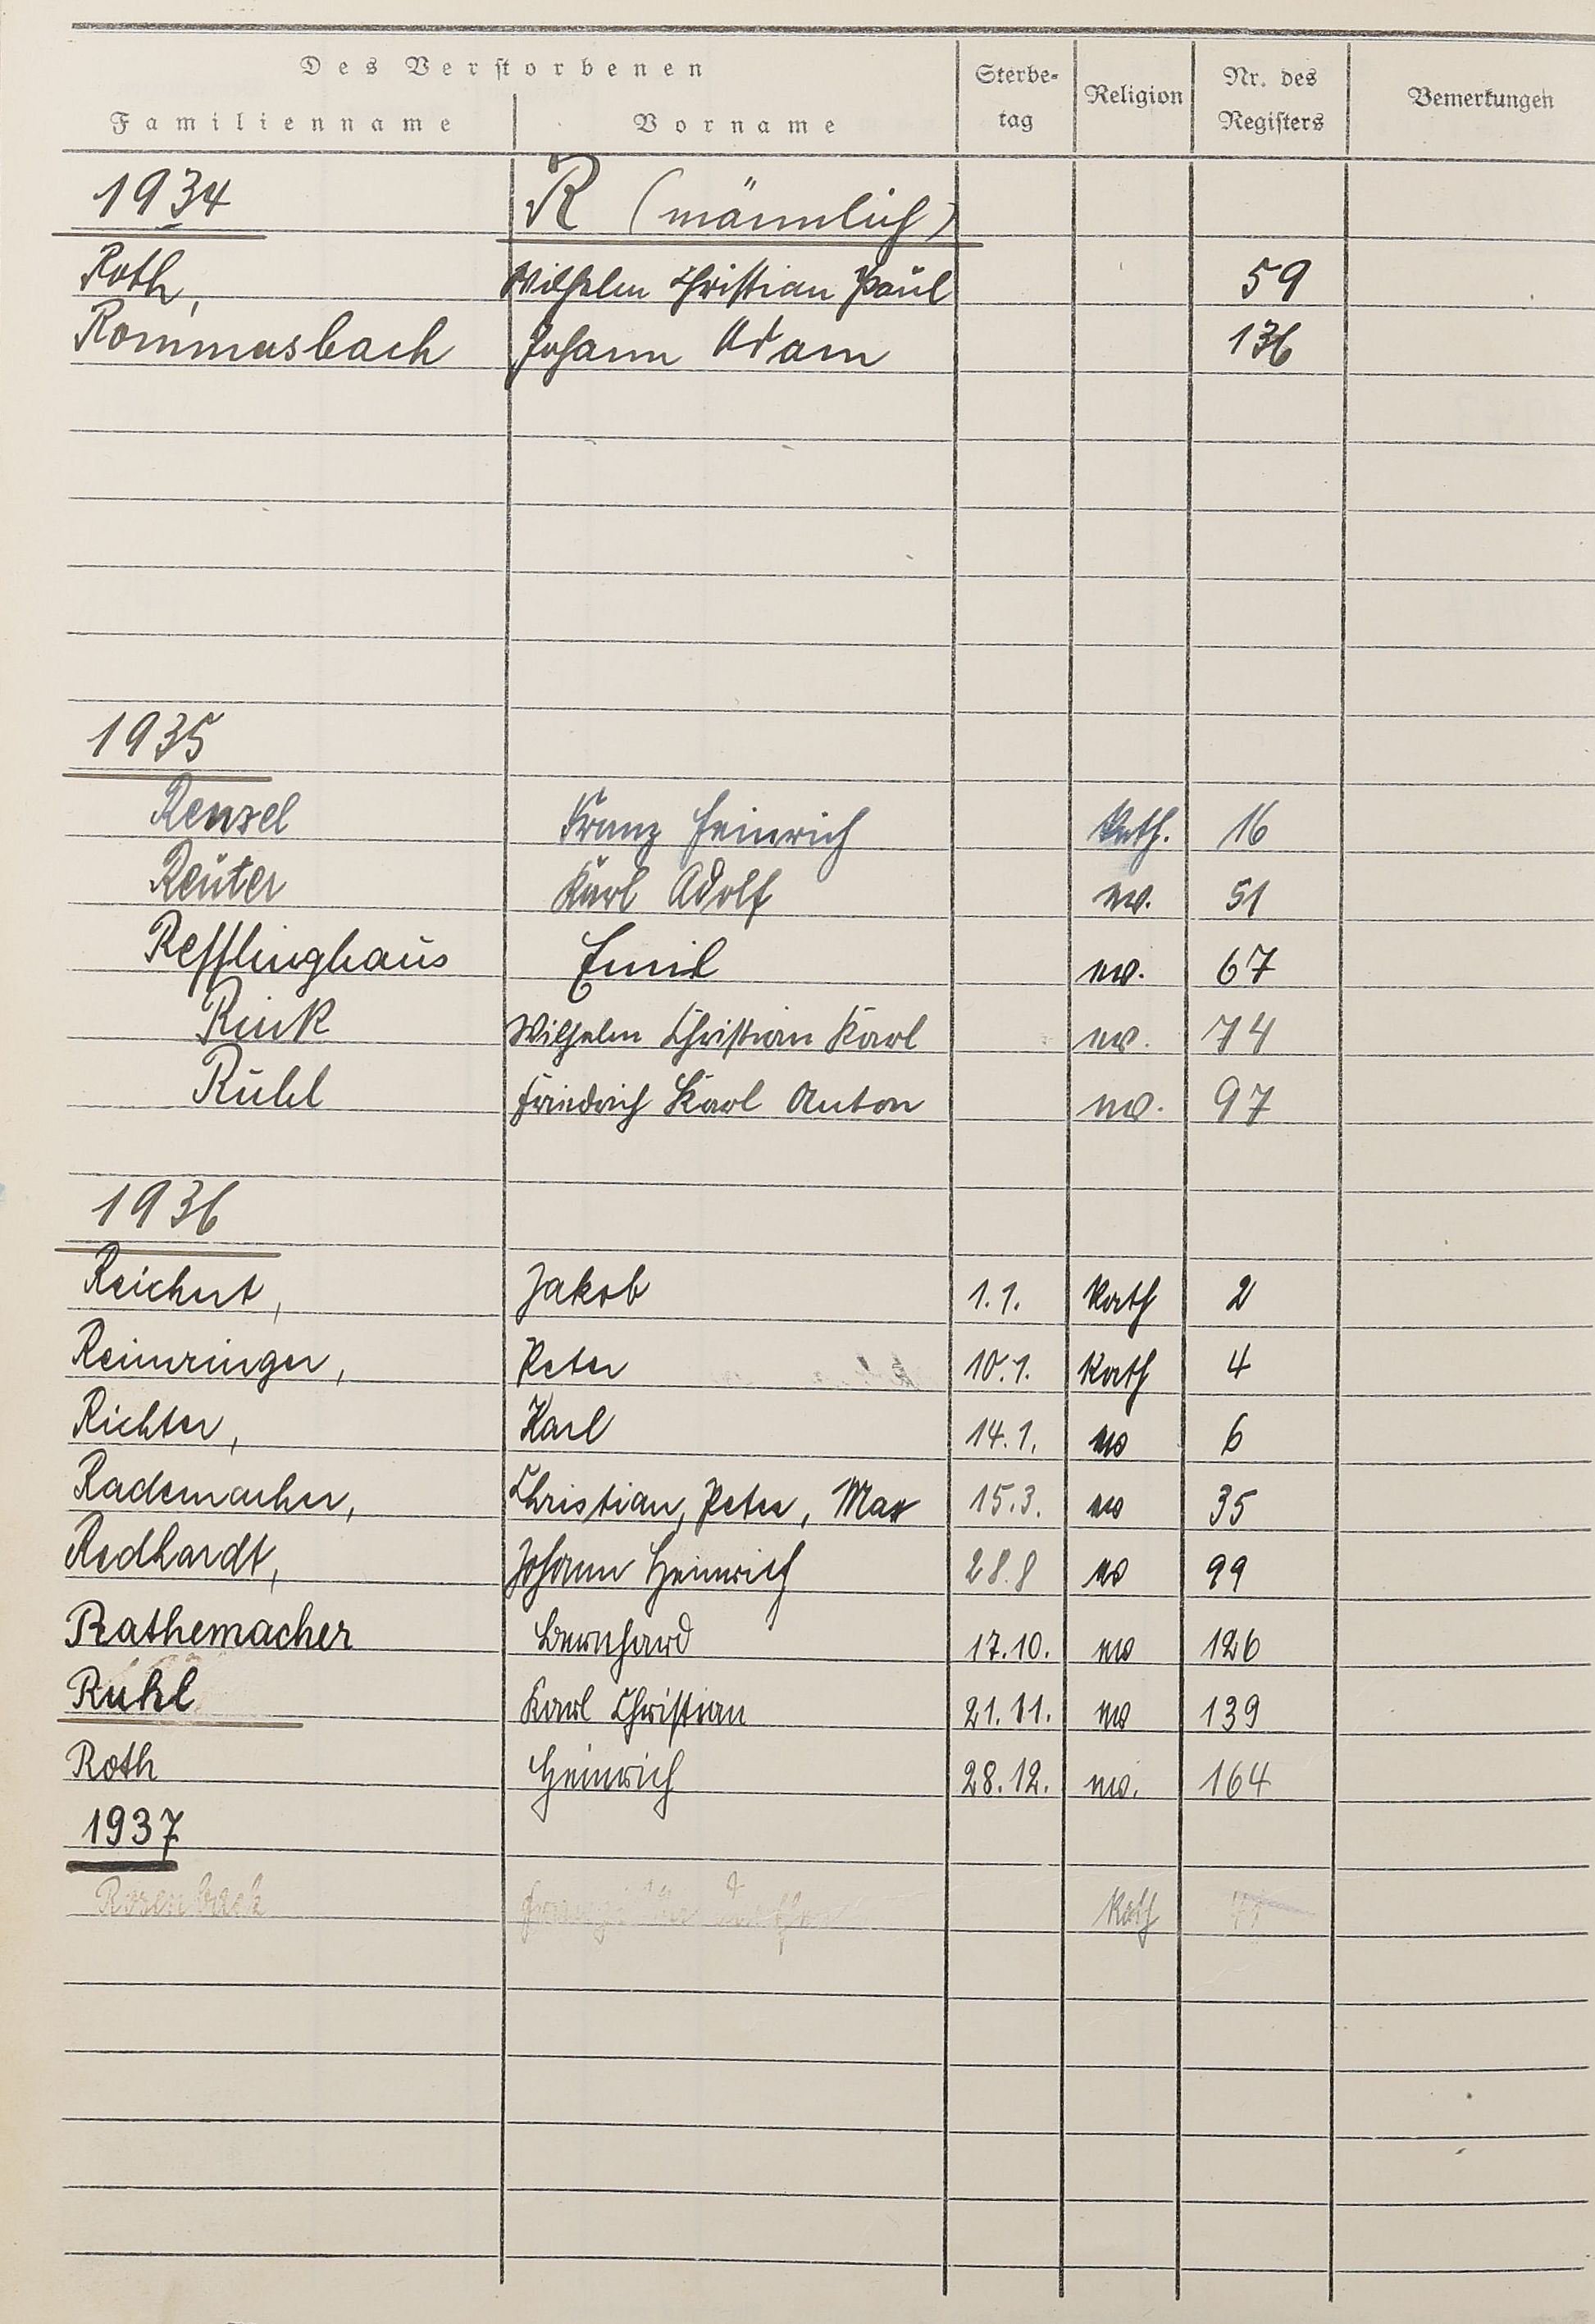 Des Verstorbenen Sterbe- Religion Nr. des Bemerkungen
Familienname Vorname tag Registers
1934 R (männlich)
Roth, Wilhelm Christian Paul 59
Rommersbach Johann Adam 136
1935
Renzel Franz Heinrich Kath. 16
Reuter Karl Adolf ev. 51
Refflinghaus Emil ev. 67
Rink Wilhelm Christian Karl ev. 74
Rühl Friedrich Karl Anton ev. 97
1936
Reichert, Jakob 1.1. Kath 2
Reimringer, Peter 10.1. Kath 4
Richter, Karl 14.1. ev 6
Rademacher, Christian, Peter, Max 15.3. ev 35
Redhardt, Johann Heinrich 28.8 ev 99
Rathemacher Bernhard 17.10. ev 126
Ruhl Karl Christian 21.11. ev 139
Roth Heinrich 28.12. ev. 164
1937
Rosenback Kath